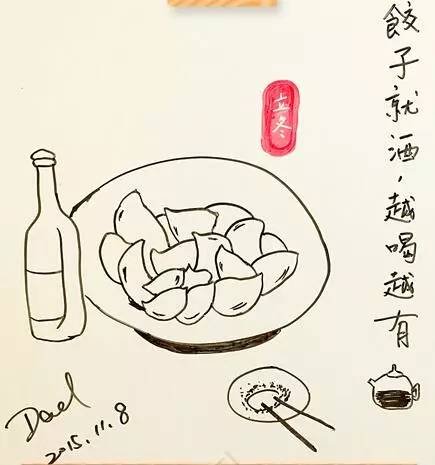 餃子就酒,越喝越有
立冬
Dael
2015.11.8